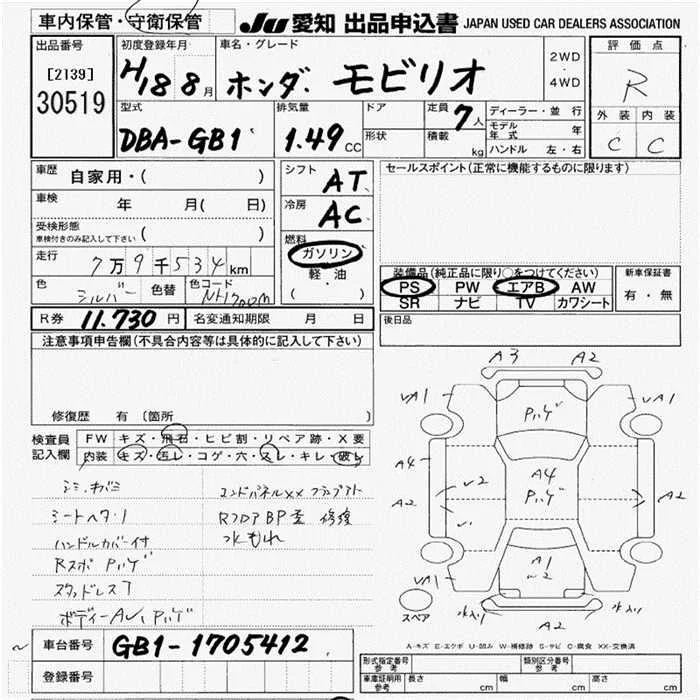 車内保管・守衛保管
JU 愛知 出品申込書 JAPAN USED CAR DEALERS ASSOCIATION
出品番号
[2139]
30519
初度登録年月
H18 8月
車名・グレード
ホンダ モビリオ
2WD
・
4WD
評価点
R
外装 内装
C C
型式
DBA-GB1
排気量
1.49 CC
ドア
形状
定員
7人
積載
kg
ディーラー・並行
モデル年式 年
ハンドル 左・右
車歴
自家用・( )
車検
年 月( 日)
受検形態
車検付きのみ記入して下さい ( )
走行
7万9千534km
色
シルバー
色替
色コード
NH700M
シフト
AT
冷房
AC
燃料
ガソリン
軽・油
( )
セールスポイント(正常に機能するものに限ります)
装備品(純正品に限り○をつけてください)
PS PW エアB AW
SR ナビ TV カワシート
新車保証書
有・無
R券 11.730円
名変通知期限 月 日
後日品
注意事項申告欄(不具合内容等は具体的に記入して下さい)
修復歴 有 (箇所 )
検査員記入欄
FW キズ・飛石・ヒビ割・リペア跡・X要
内装 キズ・汚レ・コゲ・穴・スレ・キレ・破レ
シミ・カバミ
シートヘタリ
ハンドルカバー付
Rスポ ハゲ
スタッドレス
ボディーA
エンドパネルXX
RフロアBP歪 修復
水もれ
A3 A2
UA1 UA1
ハゲ
A4
A4
ハゲ
A2
A2
A1
UA1
水入り 水入り
A2
スペア
A-キズ E-エクボ U-凹み W-補修跡 S-サビ C-腐食 XX-交換済
車台番号 GB1-1705412
登録番号
形式指定番号 参考
類別区分番号 参考
車庫証明用 参考
長さ cm
幅 cm
高さ cm